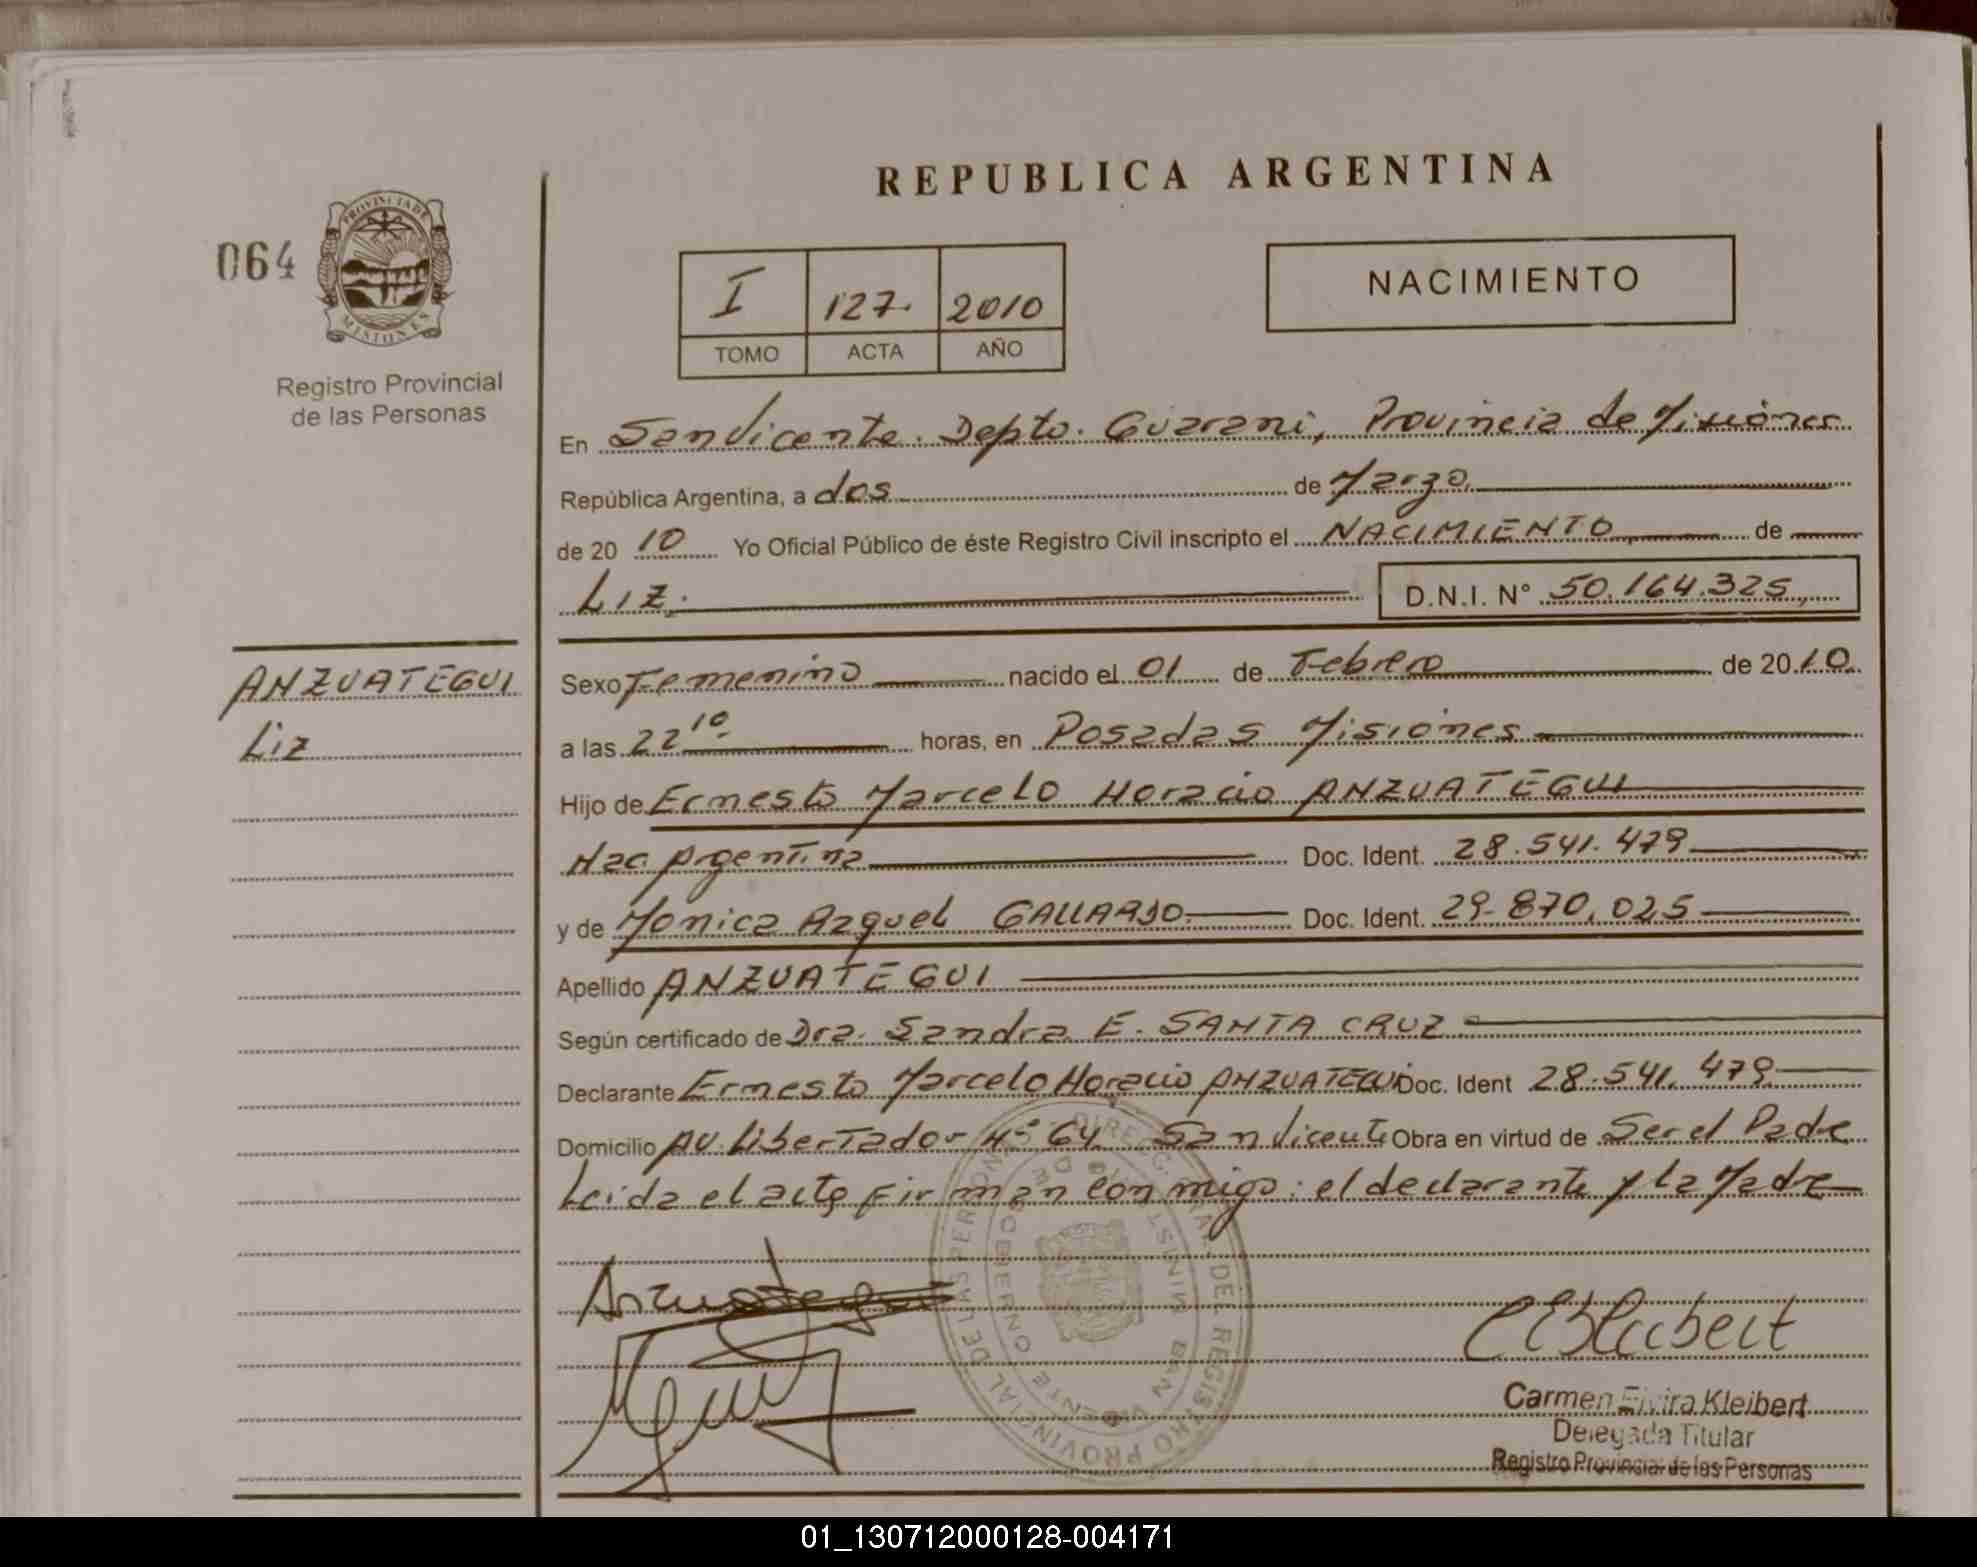 REPUBLICA ARGENTINA
064
PROVINCIA DE
MISIONES
Registro Provincial
de las Personas
I 127. 2010
TOMO ACTA AÑO
NACIMIENTO
En San Vicente. Depto. Guarani, Provincia de Misiones
República Argentina, a dos de Marzo
de 20 10 Yo Oficial Público de éste Registro Civil inscripto el NACIMIENTO de
Liz. D.N.I. N° 50.164.325
ANZUATEGUI
Liz
Sexo Femenino nacido el 01 de Febrero de 20 10.
a las 22 10 horas, en Posadas Misiones
Hijo de Ernesto Marcelo Horacio ANZUATEGUI
Nac. Argentina Doc. Ident. 28.541.479
y de Monica Raquel GALLARDO Doc. Ident. 29.870.025
Apellido ANZUATEGUI
Según certificado de Dra. Sandra E. SANTA CRUZ
Declarante Ernesto Marcelo Horacio ANZUATEGUI Doc. Ident 28.541.479
Domicilio Av. Libertador N° 64 San Vicente Obra en virtud de Ser el Padre
Leida el acta firman conmigo: el declarante y la Madre
DIREC. GRAL. DEL REGISTRO PROVINCIAL DE LAS PERSONAS
MINIST. DE GOBIERNO
SAN VICENTE
Anzuategui
Carmen Elvira Kleibert
Delegada Titular
Registro Provincial de las Personas
01_130712000128-004171